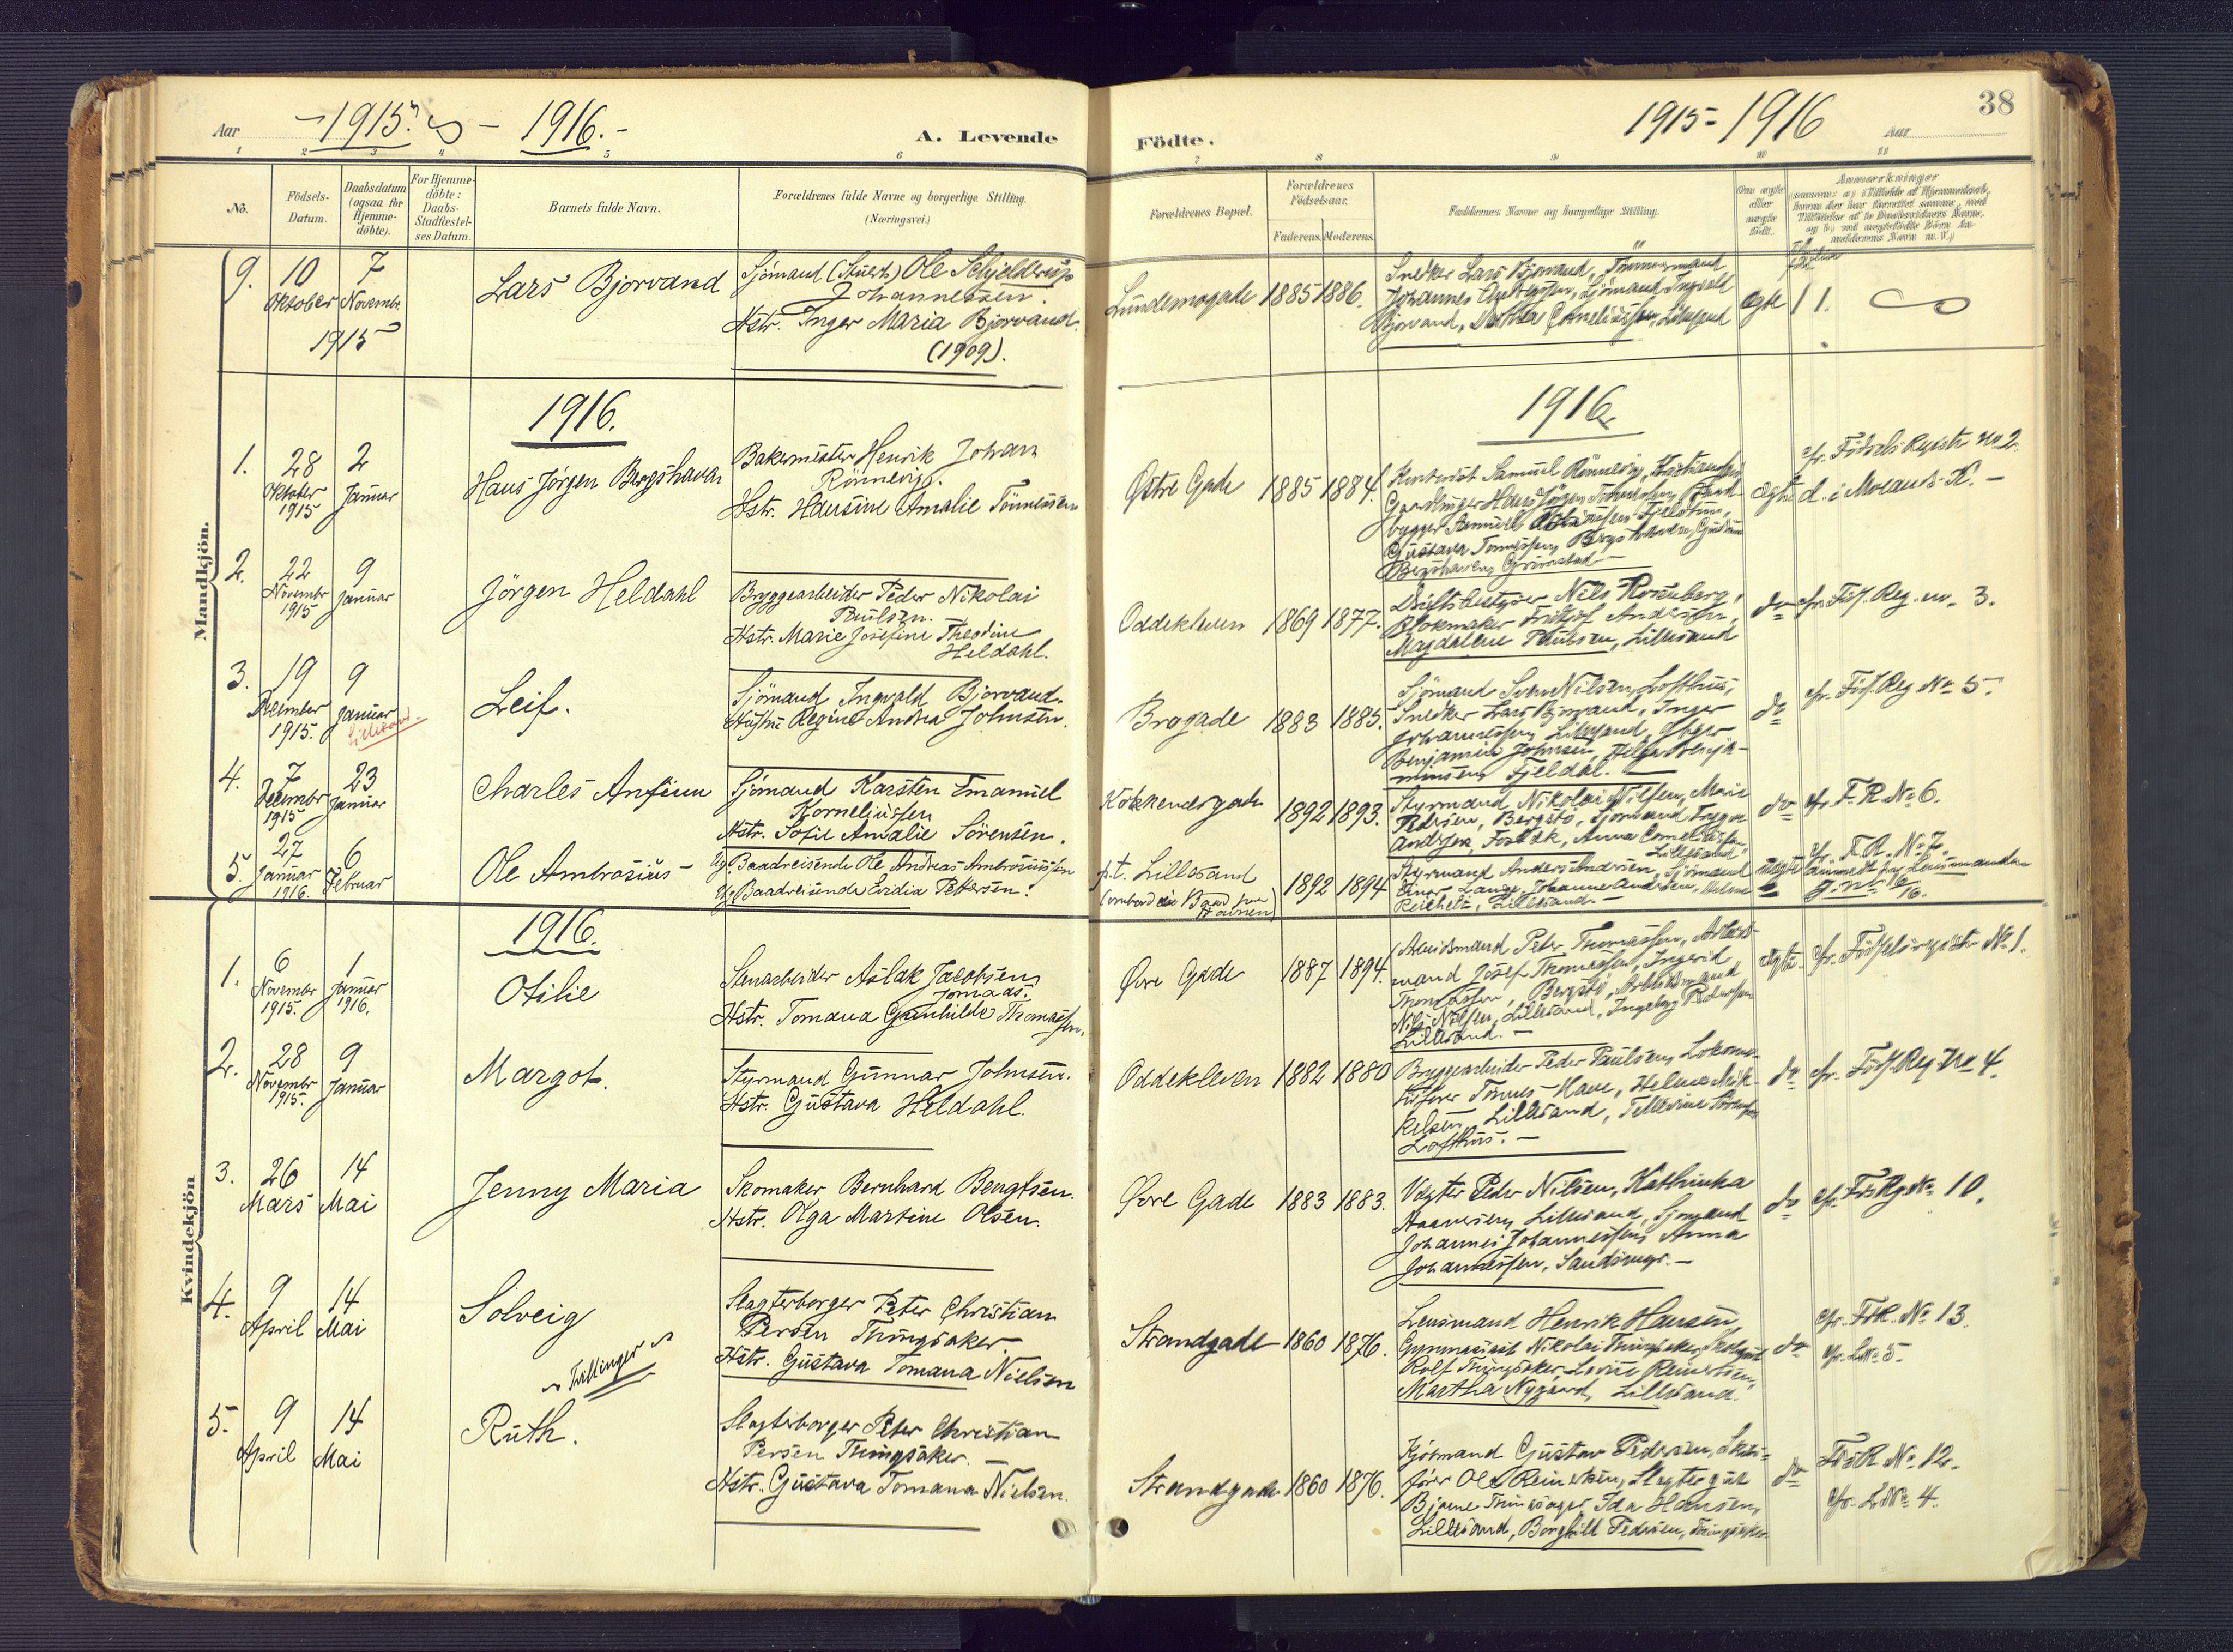 Aar 1915. - 1916.
A. Levende
Födte.
1915-1916
Aar
38
1 2 3 4 5 6 7 8 9 10 11
No.
Födsels-
Datum.
Daabsdatum
(ogsaa for
Hjemme-
döbte).
For Hjemme-
döbte:
Daabs-
Stadfæstel-
ses Datum.
Barnets fulde Navn.
Forældrenes fulde Navne og borgerlige Stilling.
(Næringsvei.)
Forældrenes Bopæl.
Forældrenes
Födselsaar.
Faderens.
Moderens.
Faddernes Navne og borgerlige Stilling.
Om ægte
eller
uægte
födt.
Anmærkninger
Mandkjön.
9.
10
Oktober
7
Novembr.
1915
Lars Bjorvand
Sjömand (Stuert) Ole Schjeldrup
Johannessen.
Hstr. Inger Maria Bjorvand.
(1909).
Lundemogade
1885
1886.
Snedker Lars Bjorvand, Tömmermand
Johannes Sjömand Ingvald
Bjorvand, Corneliussen, Lillesand
ægte
11.
1916.
1916.
1.
28
Oktober
1915
2
Januar
Hans Jörgen Bergshaven
Bakermester Henrik Johan
Rönnevig.
Hstr. Hansine Amalie Tönnessen
Østre Gade
1885
1884.
Kontorist Samuel Rönnevig, Kristiansand
Gaardbruger Hans Jörgen Tönnessen,
bygger Samuel
Gustava Tönnessen, Bergshaven, Gudrun
Bergshaven, Grimstad
ægte
cfr. Födsels Registr No 2.
d. i Moland K. -
2.
22
Novembr
1915
9
Januar
Jörgen Heldahl
Bryggearbeider Peder Nikolai
Paulsen.
Hstr. Marie Josefine Theodine
Heldahl.
Oddekleven
1869
1877.
Driftsbestyrer Nils Rosenberg,
Blokmaker Fritjof Andersen,
Magdalene Paulsen, Lillesand
do
cfr. Föd. Reg. no. 3.
3.
19
Desember
1915.
9
Januar
Lillesand.
Leif.
Sjömand Ingvald Bjorvand.
Hustru Regine Andrea Johnsen.
Brogade
1883
1885.
Sjömand Sven Nilsen, Lofthus,
Snedker Lars Bjorvand, Inger
Johannessen, Lillesand,
Benjamin Johnsen, Helga Benja-
minsen, Fjeldal.
do
cfr. Föd. Reg No 5.
4.
7
Decembr
1915
23
Januar
Charles Anfinn
Sjömand Karsten Emanuel
Korneliussen
Hstr. Sofie Amalie Sörensen.
Kokkenesgade
1892
1893.
Styrmand Nikolai Nilsen, Marie
Pedersen, Bergstö, Sjömand Trygve
Andersen, Anna Corneliussen,
Lillesand
do
cfr. F. R. No 6.
5.
27
Januar
1916.
6
Februar
Ole Ambrosius
Ug. Baadreisende Ole Andreas Ambrosiussen
Ug. Baadreisende Evidia Pettersen.
p.t. Lillesand
(ombord i en Baad paa
Havnen)
1892
1894
Styrmand Anders Andersen, Sjömand
Einar Lange, Johanne Andersen, Helene
Reichelt, Lillesand. -
uægte
cfr. F. R. No 7.
Anmeldt fra Lensmanden
Kvindekjön
1916.
1.
6
Novembr
1915.
1
Januar
1916.
Otilie
Stenarbeider Aslak Jacobsen
Jomaas.
Hstr. Tomana Gunhilde Thomassen.
Øvre Gade
1887
1894.
Arbeidsmand Peter Thomassen, Arbeids-
mand Josef Thomassen, Ingerid
Thomassen, Bergstö, Arbeidsmand
Nils Nilsen, Lillesand, Ingeborg Pedersen
Lillesand. -
ægte.
cfr. Födselsregistr No 1.
2.
28
Novembr
1915.
9
Januar
Margot.
Styrmand Gunnar Johnsen.
Hstr. Gustava Heldahl.
Oddekleven
1882
1880
Bryggearbeider Peder Paulsen, Lokomo-
tivförer Tönnes Have, Helene Mik-
kelsen, Lillesand, Tellevine Sörensen
Lofthus. -
do
cfr. Föd. Reg No 4.
3.
26
Mars
14
Mai
Jenny Maria
Skomaker Bernhard Bengtsen.
Hstr. Olga Martine Olsen.
Øvre Gade
1883
1883.
Vegter Peder Nilsen, Kathinka
Haavesen, Lillesand, Sjömand
Johannes Johannessen, Anna
Johannessen, Sandsmyr. -
do
cfr. Föd. Reg No 10.
4.
9
April
14
Mai
Solveig
Slagterborger Peter Christian
Persen Thingsaker.
Hstr. Gustava Tomana Nielsen
Tvillinger
Strandgade
1860
1876.
Lensmand Henrik Hansen,
Gymnasiast Nikolai Thingsaker, Skolegut
Rolf Thingsaker, Lovise Reinertsen,
Martha Nygaard, Lillesand.
do
cfr. F.R. No 13.
cfr. L No 5.
5.
9
April
14
Mai
Ruth.
Slagterborger Peter Christian
Persen Thingsaker. -
Hstr. Gustava Tomana Nielsen.
Strandgade
1860
1876.
Sjömand Gustav Pedersen, Skræd-
Ole Reinertsen, Slagtergut
Bjarne Thingsaker, Ida Hansen,
Lillesand, Borghild Pedersen, Thingsaker
do
F.R. No 12.
cfr. L No 4.